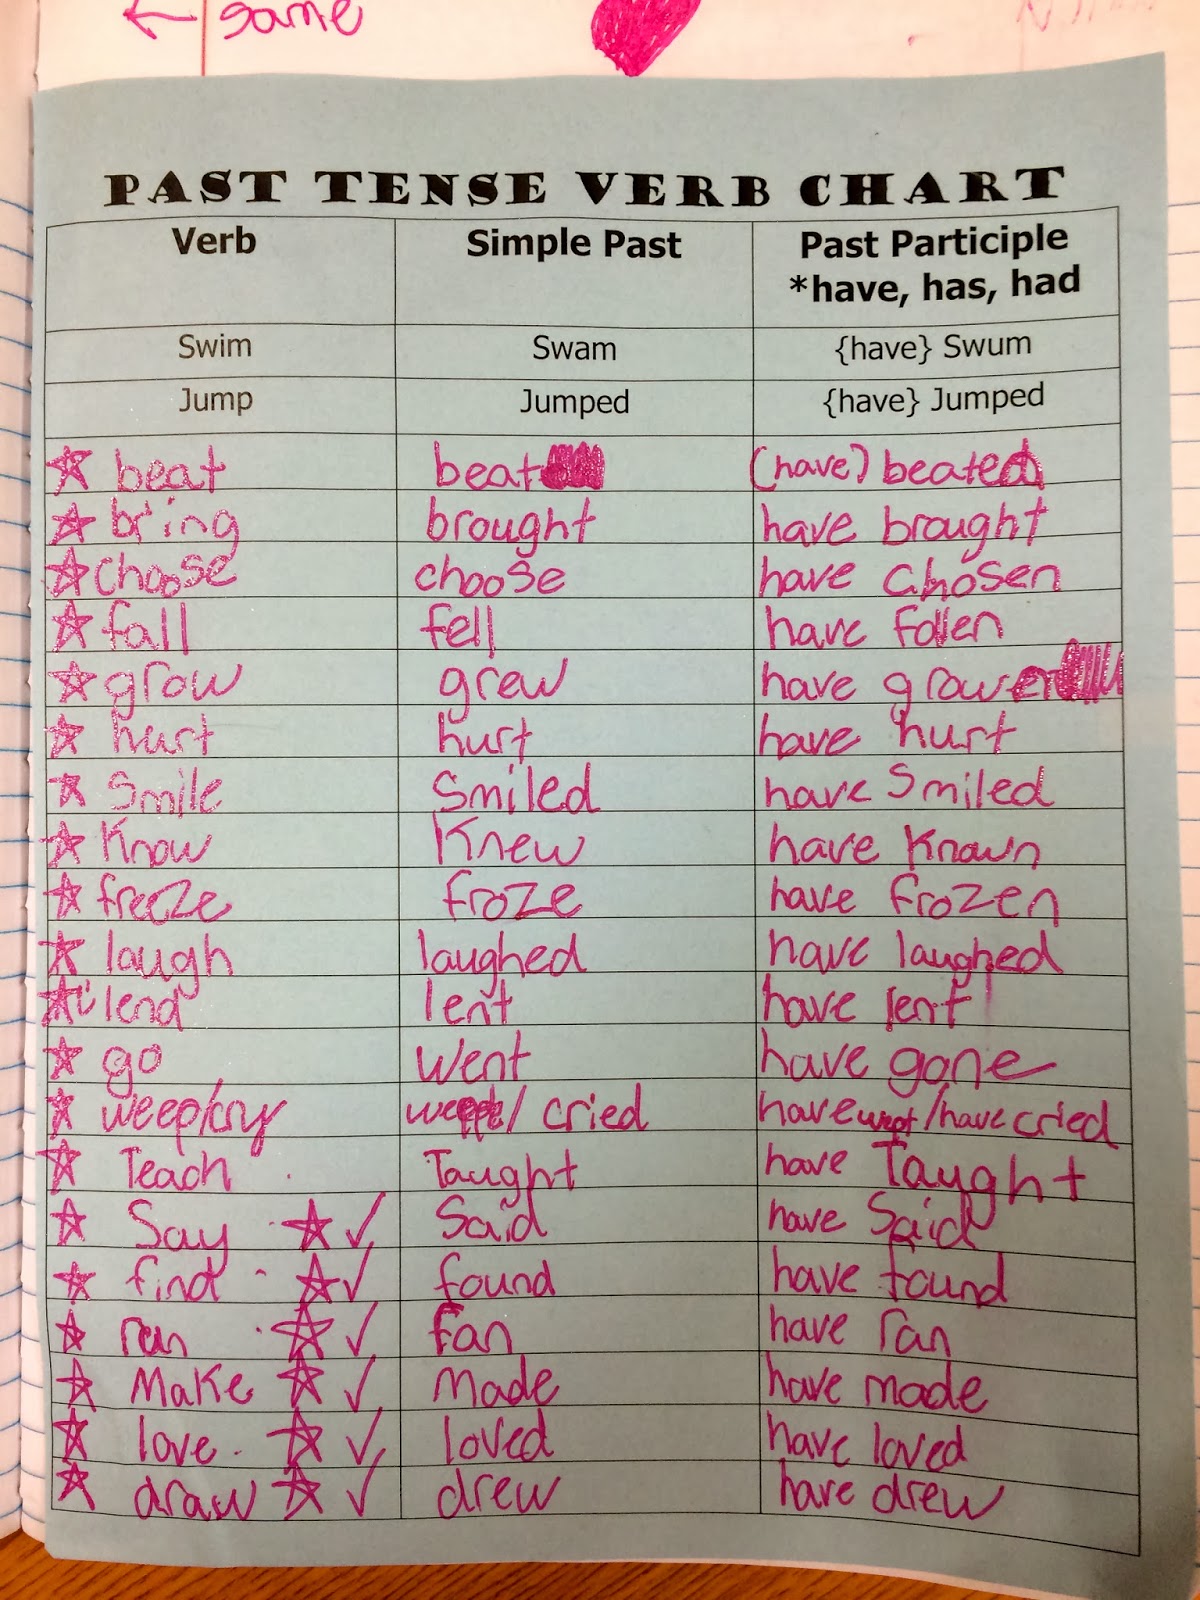 same
PAST TENSE VERB CHART
Verb Simple Past Past Participle
*have, has, had
Swim Swam {have} Swum
Jump Jumped {have} Jumped
beat beat (have) beated
bring brought have brought
choose choose have chosen
fall fell have fallen
grow grew have grown
hurt hurt have hurt
Smile Smiled have Smiled
Know Knew have Known
freeze froze have frozen
laugh laughed have laughed
lend lent have lent
go went have gone
weep/cry / cried have wept/have cried
Teach Taught have Taught
Say Said have Said
find found have found
ran ran have ran
Make Made have made
love loved have loved
draw drew have drew